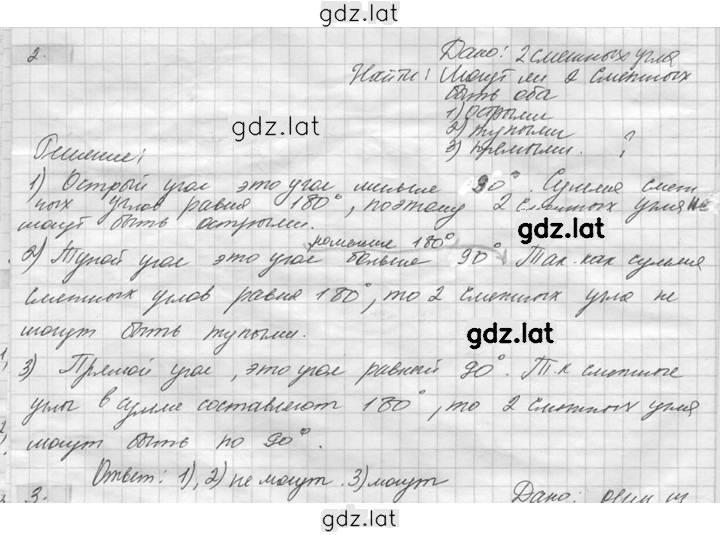 gdz.lat
2.
Дано: 2 смежных угла
Найти: Могут ли 2 смежных
быть оба
1) острыми
gdz.lat
2) тупыми
3) прямыми. ?
Решение:
1) Острый угол это угол меньше 90°. Сумма смеж
ных углов равна 180°, поэтому 2 смежных угла не
могут быть острыми.
но меньше 180°
2) Тупой угол это угол больше 90° Так как сумма
смежных углов равна 180°, то 2 смежных угла не
могут быть тупыми.
gdz.lat
3) Прямой угол, это угол равный 90°. Т.к смежные
углы в сумме составляют 180°, то 2 смежных угла
могут быть по 90°.
Ответ: 1), 2) не могут. 3) могут
3. Дано: один из
gdz.lat